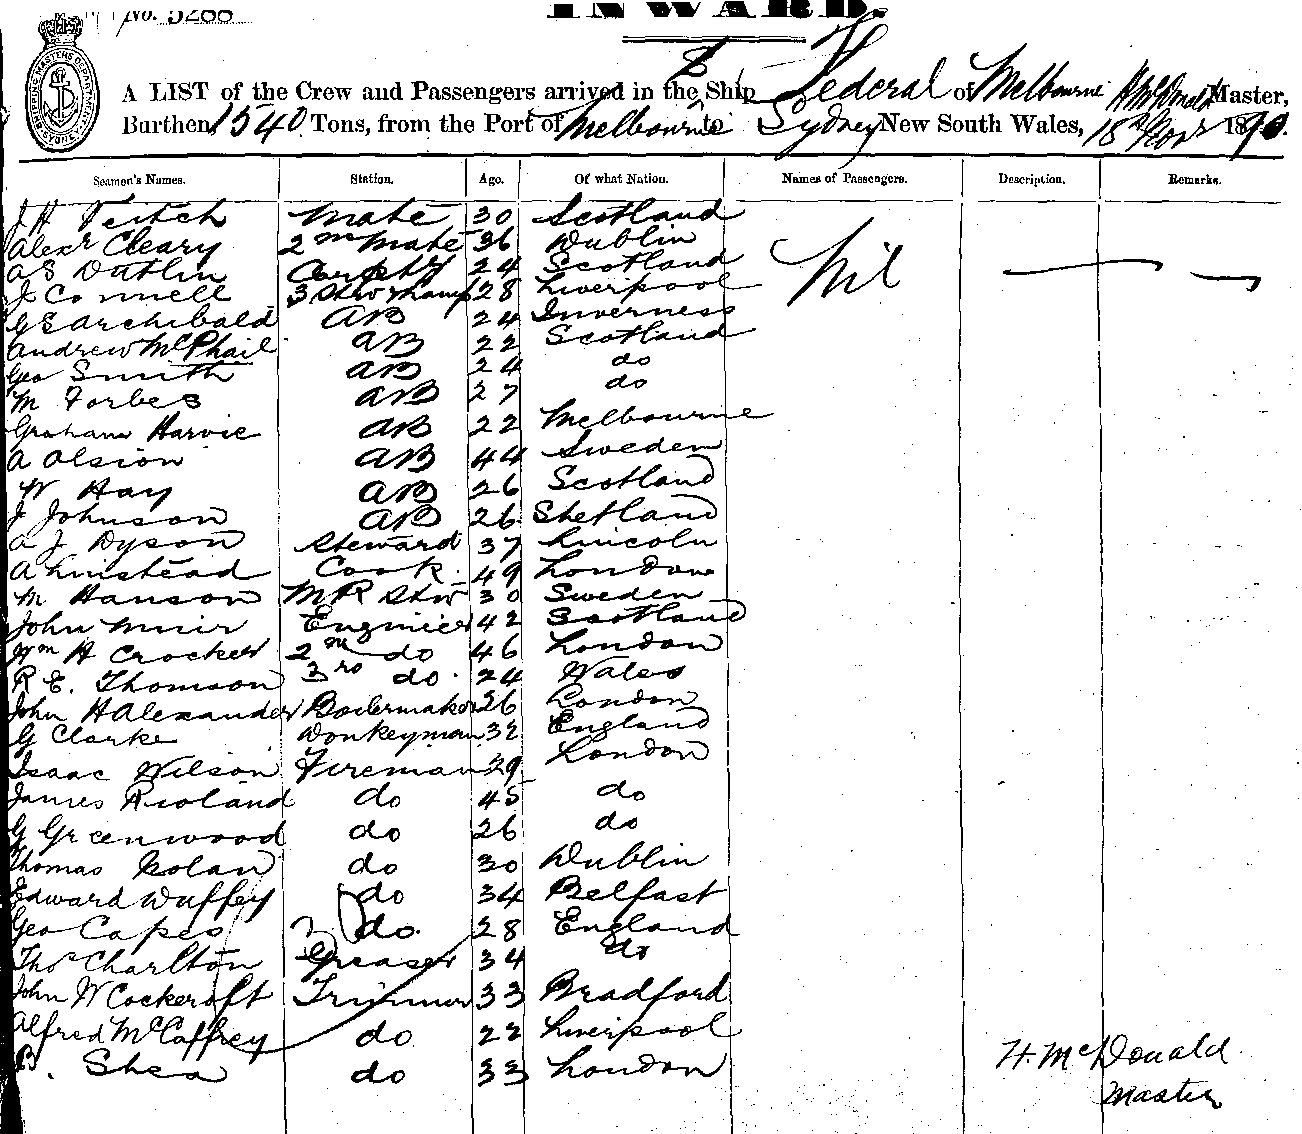 No. 5288
INWARD.
A LIST of the Crew and Passengers arrived in the Ship Federal of Melbourne H McDonald Master,
Burthen 1540 Tons, from the Port of Melbourne to Sydney New South Wales, 18th Novr 1890.
Seamen's Names. Station. Age. Of what Nation. Names of Passengers. Description. Remarks.
J H Veitch Mate 30 Scotland
Alexr Cleary 2nd Mate 36 Dublin Nil
A S Duthin Carptr 24 Scotland
J Connell 3 Stw & Lamp 28 Liverpool
G E Archibald AB 24 Inverness
Andrew McPhail AB 22 Scotland
Geo Smith AB 24 do
M Forbes AB 27 do
Graham Harvie AB 22 Melbourne
A Olsion AB 44 Sweden
W Hay AB 26 Scotland
J Johnson AB 26 Shetland
A J Dyson Steward 37 Lincoln
A Linstead Cook 49 London
M Hanson M R Stw 30 Sweden
John Muir Enginier 42 Scotland
Wm H Crocker 2nd do 46 London
R E. Thomson 3rd do. 24 Wales
John H Alexander Boilermaker 26 London
G Clarke Donkeyman 32 England
Isaac Wilson Fireman 29 London
James Rioland do 45 do
G Greenwood do 26 do
Thomas Nolan do 30 Dublin
Edward Duffey do 34 Belfast
Geo Capes do. 28 England
Thos Charlton Greaser 34 do
John W Cockcroft Trimmer 33 Bradford
Alfred McCaffrey do 22 Liverpool
B. Shea do 33 London
H. McDonald
Master